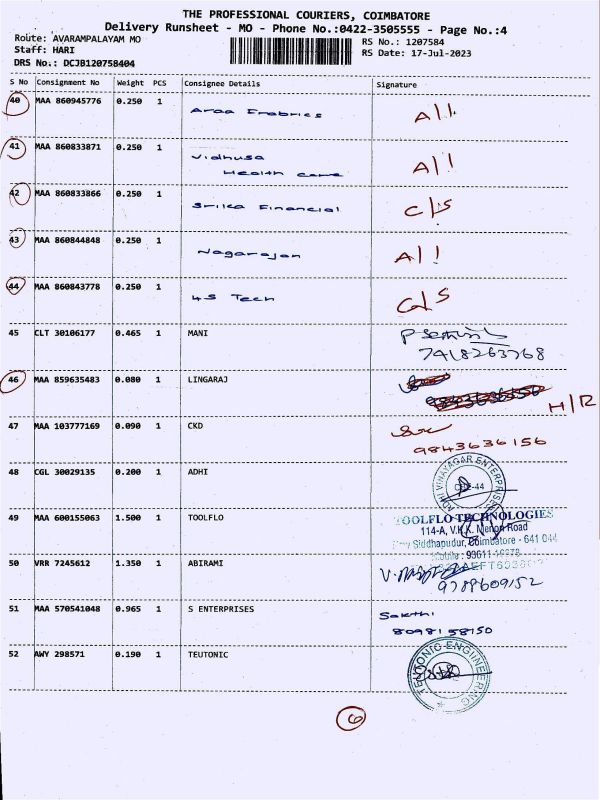 THE PROFESSIONAL COURIERS, COIMBATORE
Delivery Runsheet - MO - Phone No.:0422-3505555 - Page No.:4
Route: AVARAMPALAYAM MO
Staff: HARI
DRS No.: DCJB120758404
RS No.: 1207584
RS Date: 17-Jul-2023
S No Consignment No Weight PCS Consignee Details Signature
40 MAA 860945776 0.250 1 All
41 MAA 860833871 0.250 1 Vidhusa All
Health care
42 MAA 860833866 0.250 1 Srika Financial C/S
43 MAA 860844848 0.250 1 Nagarajan All
44 MAA 860843778 0.250 1 4S Tech C/S
45 CLT 30106177 0.465 1 MANI
7418263768
46 MAA 859635483 0.080 1 LINGARAJ
H/R
47 MAA 103777169 0.090 1 CKD
9843636156
48 CGL 30029135 0.200 1 ADHI
VINAYAGAR ENTERPRISES
CBE-44
49 MAA 600155063 1.500 1 TOOLFLO
TOOLFLO TECHNOLOGIES
114-A, V.K.K. Menon Road
Siddhapudur, Coimbatore - 641 044
50 VRR 7245612 1.350 1 ABIRAMI
9788609152
51 MAA 570541048 0.965 1 S ENTERPRISES
Sakthi
8098158150
52 AWY 298571 0.190 1 TEUTONIC
TEUTONIC ENGINEERING
6